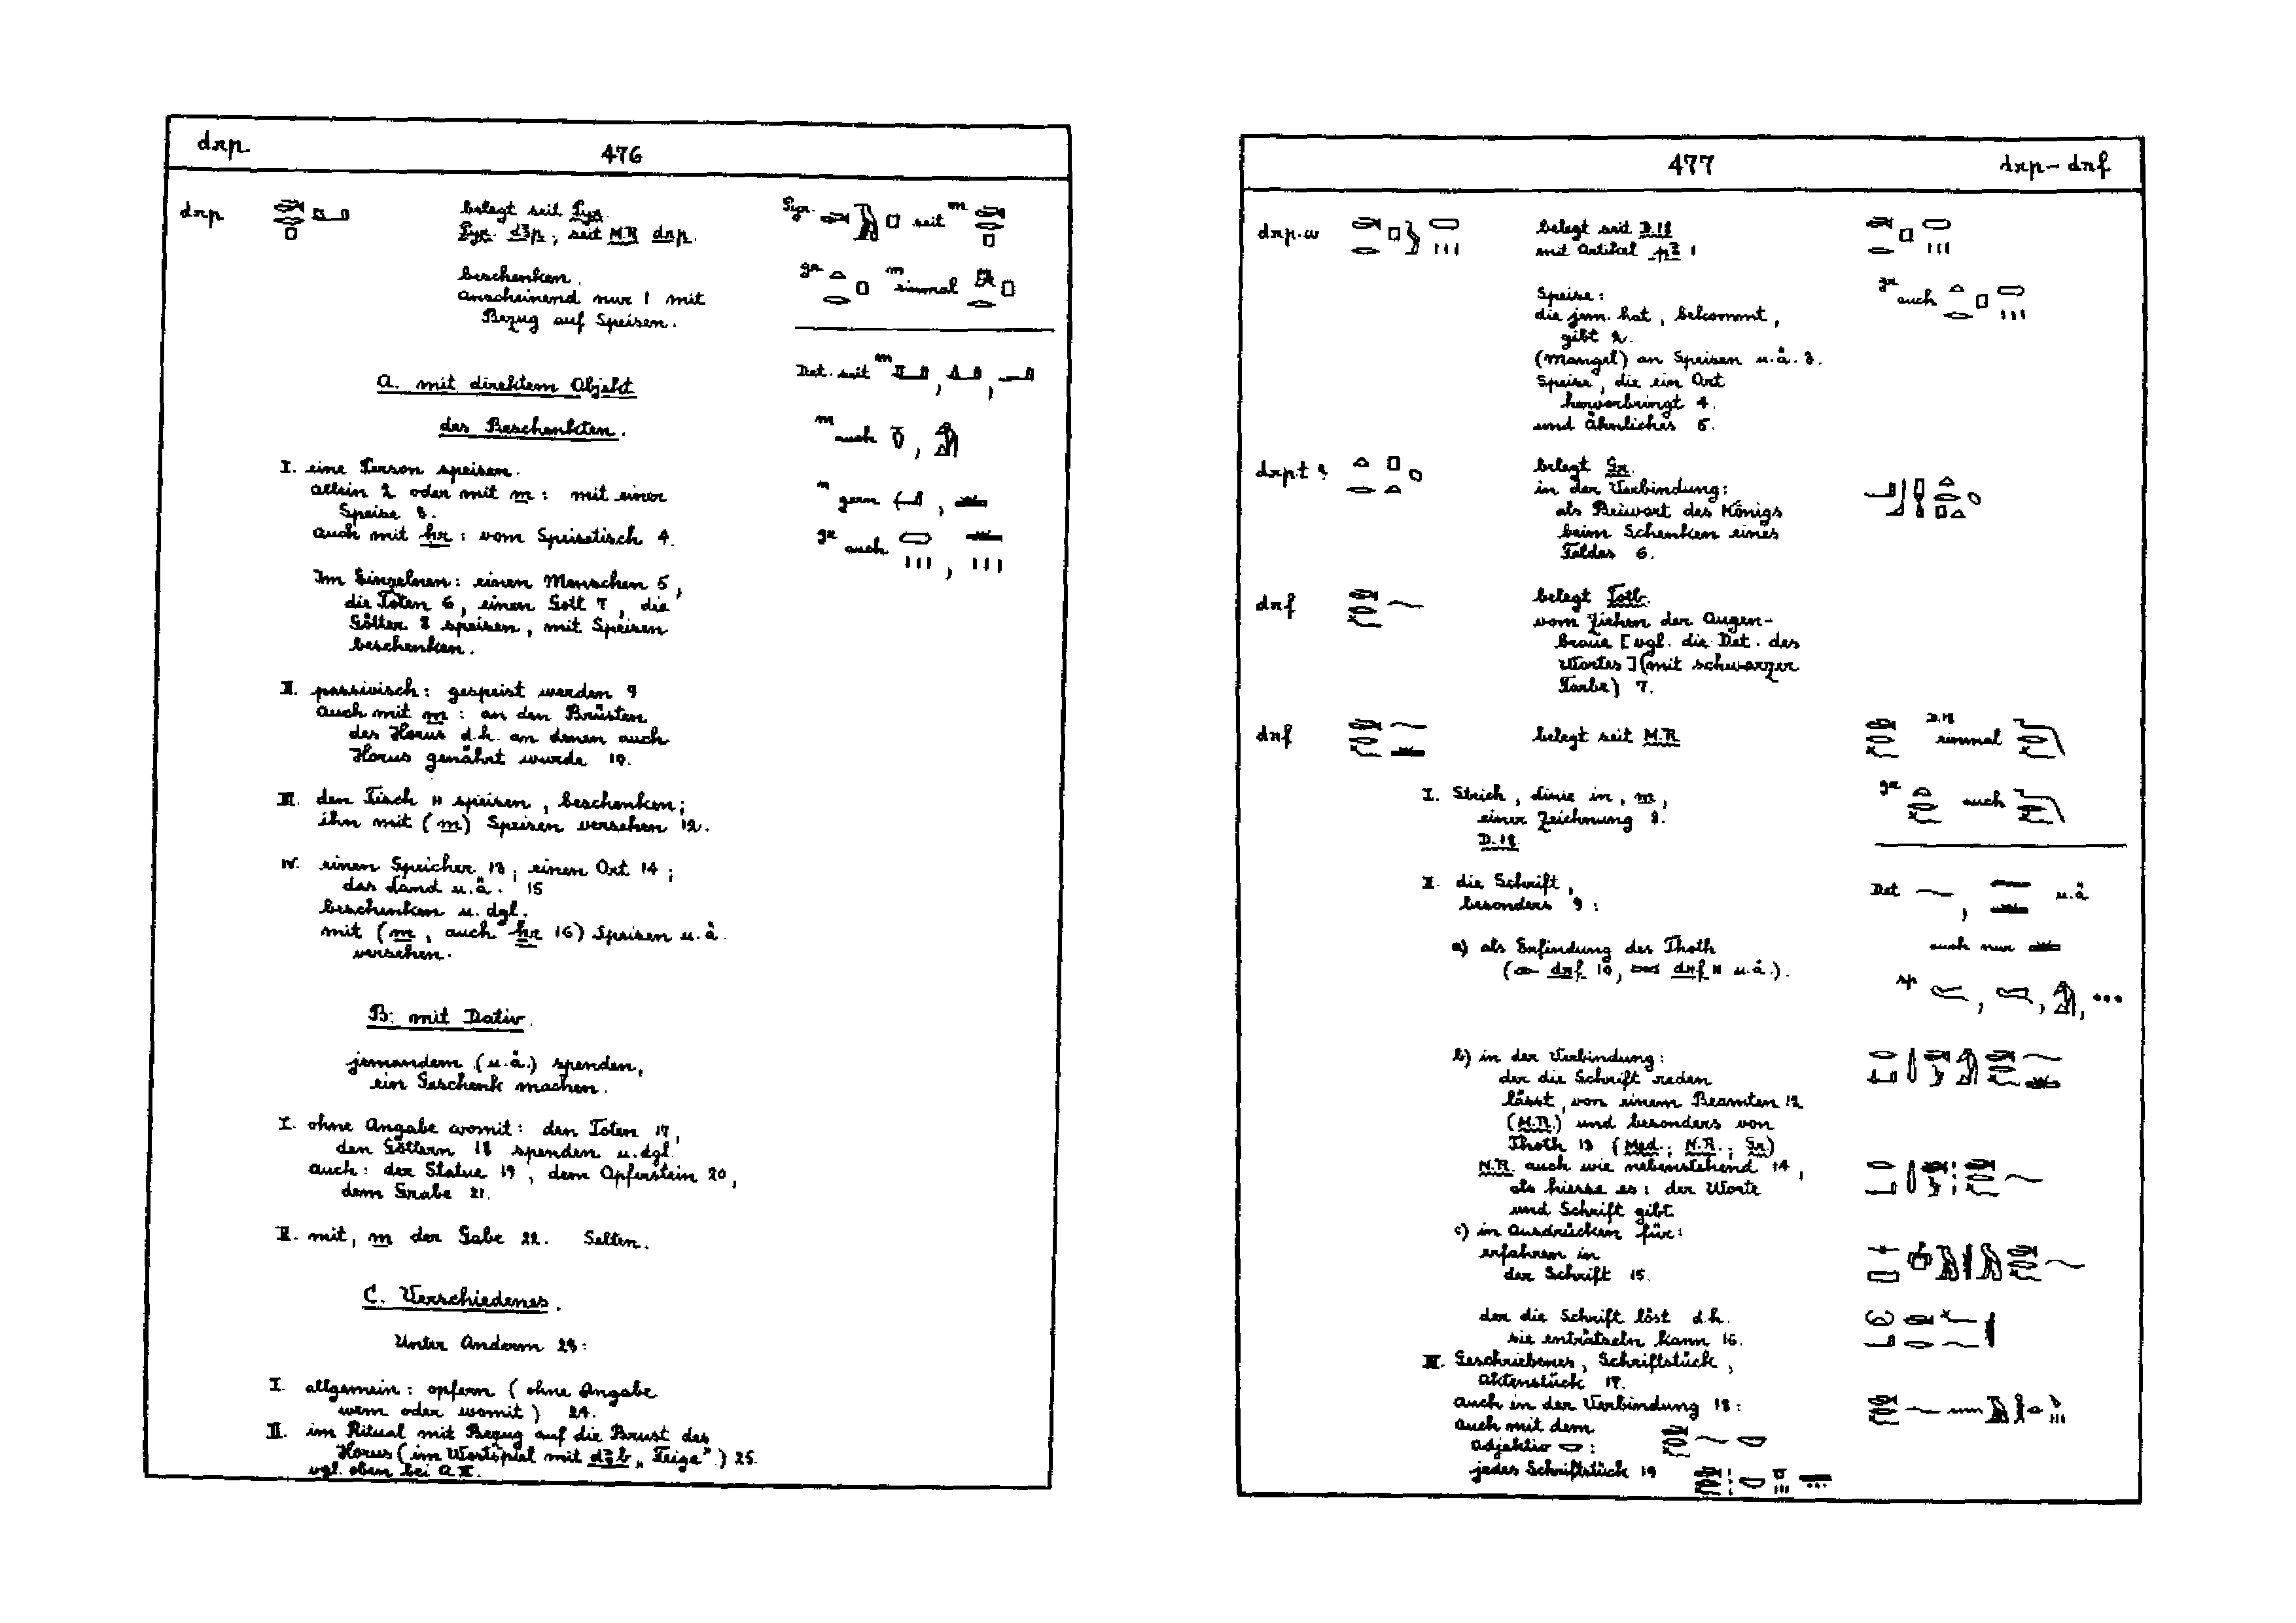 drp
476
drp
belegt seit Pyr.
Pyr. dꜣp; seit M.R. drp.
Pyr. seit m
beschenken.
anscheinend nur 1 mit
Bezug auf Speisen.
gr m einmal
Det. seit m
A. mit direktem Objekt
des Beschenkten.
m auch
I. eine Person speisen.
allein 2 oder mit m: mit einer
Speise 3.
auch mit ḥr: vom Speisetisch 4.
gern
gr auch
Im Einzelnen: einen Menschen 5,
die Toten 6, einen Gott 7, die
Götter 8 speisen, mit Speisen
beschenken.
II. passivisch: gespeist werden 9
auch mit m: an den Brüsten
des Horus d.h. an denen auch
Horus genährt wurde 10.
III. den Tisch 11 speisen, beschenken;
ihn mit (m) Speisen versehen 12.
IV. einen Speicher 13; einen Ort 14;
das Land u.ä. 15
beschenken u. dgl.
mit (m, auch ḫr 16) Speisen u.ä.
versehen.
B: mit Dativ.
jemandem (u.ä.) spenden,
ein Geschenk machen.
I. ohne Angabe womit: den Toten 17,
den Göttern 18 spenden u.dgl.
auch: der Statue 19, dem Opferstein 20,
dem Grabe 21.
II. mit, m der Gabe 22. Selten.
C. Verschiedenes.
Unter Anderm 23:
I. allgemein: opfern (ohne Angabe
wem oder womit) 24.
II. im Ritual mit Bezug auf die Brust des
Horus (im Wortspiel mit dꜣb „Feige") 25.
vgl. oben bei A II.
477
drp – drf
drp.w
belegt seit D.18
mit Artikel pꜣ 1
Speise:
die jem. hat, bekommt,
gibt 2.
(Mangel) an Speisen u.ä. 3.
Speise, die ein Ort
hervorbringt 4.
und Ähnliches 5.
gr auch
drpt ?
belegt Gr.
in der Verbindung:
als Beiwort des Königs
beim Schenken eines
Feldes 6.
drf
belegt Totb.
vom Ziehen der Augen-
braue [vgl. die Det. des
Wortes] (mit schwarzer
Farbe) 7.
drf
belegt seit M.R.
D.18 einmal
I. Strich, Linie in, m,
einer Zeichnung 8.
D.18.
gr auch
II. die Schrift,
besonders 9:
Det u.ä
a) als Erfindung des Thoth
(drf 10, drf 11 u.ä.).
auch nur
sp
b) in der Verbindung:
der die Schrift reden
lässt, von einem Beamten 12
(M.R.) und besonders von
Thoth 13 (Med.; N.R.; Gr.)
N.R. auch wie nebenstehend 14,
als hiesse es: der Worte
und Schrift gibt.
c) in Ausdrücken für:
erfahren in
der Schrift 15.
der die Schrift löst d.h.
sie enträtseln kann 16.
III. Geschriebenes, Schriftstück,
Aktenstück 17.
auch in der Verbindung 18:
auch mit dem
Adjektiv :
jedes Schriftstück 19